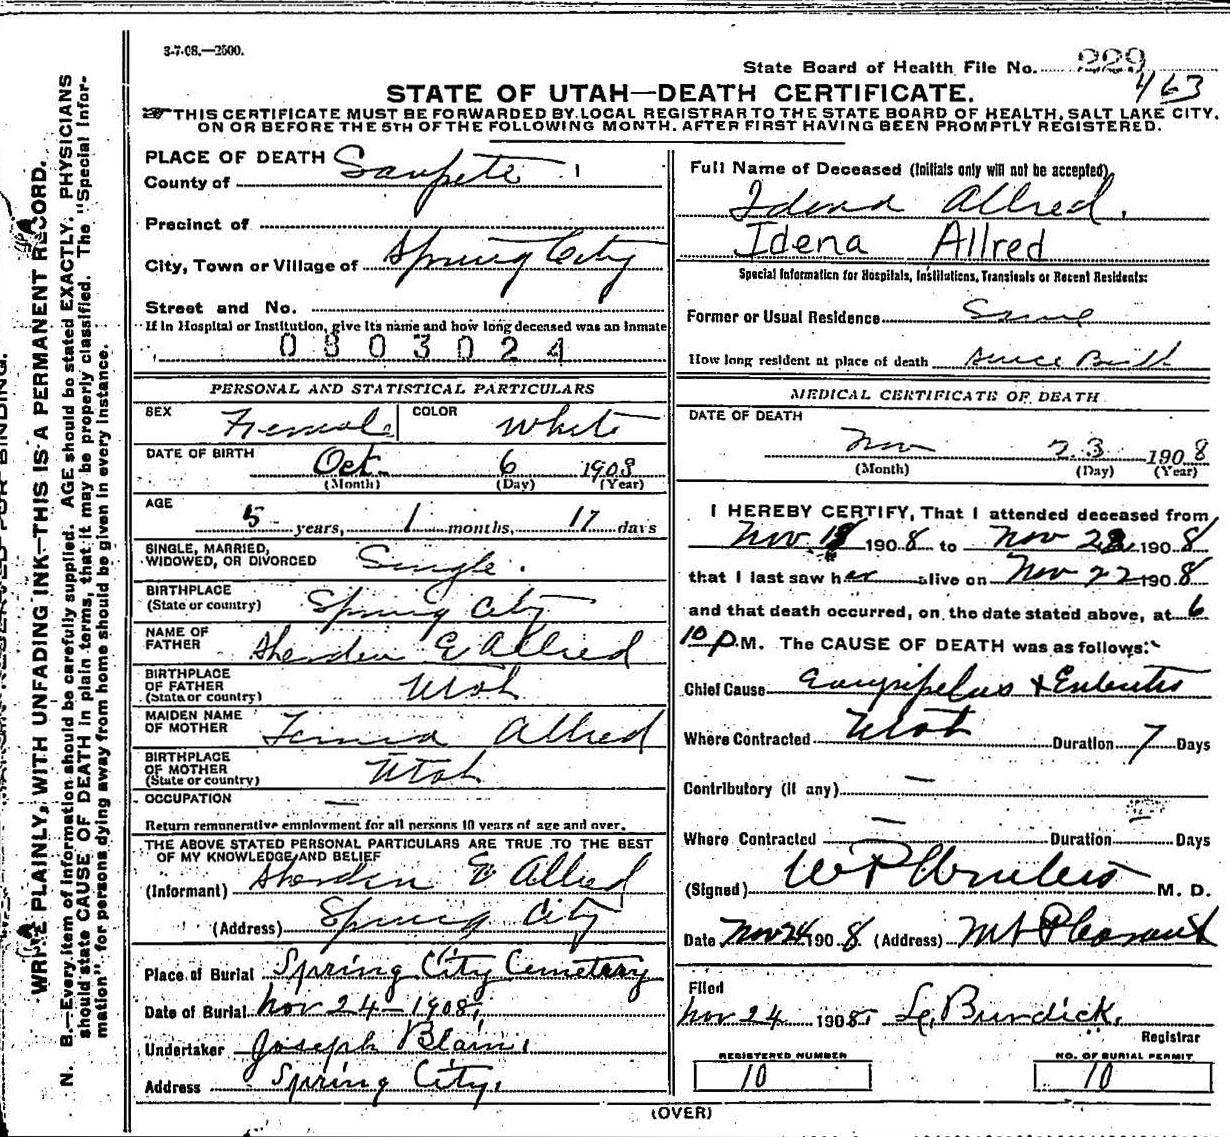 3-7-08.—2500.
State Board of Health File No. 229
463
STATE OF UTAH—DEATH CERTIFICATE.
THIS CERTIFICATE MUST BE FORWARDED BY LOCAL REGISTRAR TO THE STATE BOARD OF HEALTH, SALT LAKE CITY,
ON OR BEFORE THE 5TH OF THE FOLLOWING MONTH, AFTER FIRST HAVING BEEN PROMPTLY REGISTERED.
WRITE PLAINLY, WITH UNFADING INK—THIS IS A PERMANENT RECORD.
N. B.—Every item of information should be carefully supplied. AGE should be stated EXACTLY. PHYSICIANS
should state CAUSE OF DEATH in plain terms, that it may be properly classified. The "Special Infor-
mation" for persons dying away from home should be given in every instance.
PLACE OF DEATH
County of Sanpete
Precinct of
City, Town or Village of Spring City
Street and No.
If in Hospital or Institution, give its name and how long deceased was an inmate
0803024
PERSONAL AND STATISTICAL PARTICULARS
SEX Female COLOR White
DATE OF BIRTH Oct. 6 1903
(Month) (Day) (Year)
AGE 5 years, 1 months, 17 days
SINGLE, MARRIED,
WIDOWED, OR DIVORCED Single.
BIRTHPLACE
(State or country) Spring City
NAME OF
FATHER E Allred
BIRTHPLACE
OF FATHER
(State or country) Utah
MAIDEN NAME
OF MOTHER Allred
BIRTHPLACE
OF MOTHER
(State or country) Utah
OCCUPATION —
Return remunerative employment for all persons 10 years of age and over.
THE ABOVE STATED PERSONAL PARTICULARS ARE TRUE TO THE BEST
OF MY KNOWLEDGE AND BELIEF
(Informant) E Allred
(Address) Spring City
Place of Burial Spring City Cemetery
Date of Burial Nov 24-1908.
Undertaker Joseph Blain.
Address Spring City.
Full Name of Deceased (Initials only will not be accepted)
Idena Allred.
Idena Allred
Special Information for Hospitals, Institutions, Transients or Recent Residents:
Former or Usual Residence Same
How long resident at place of death Since Birth
MEDICAL CERTIFICATE OF DEATH
DATE OF DEATH
Nov 23 1908
(Month) (Day) (Year)
I HEREBY CERTIFY, That I attended deceased from
Nov 1908 to Nov 1908
that I last saw her alive on Nov 22 1908
and that death occurred, on the date stated above, at 6
10 P.M. The CAUSE OF DEATH was as follows:
Chief Cause
Where Contracted Utah Duration 7 Days
Contributory (if any) —
Where Contracted — Duration — Days
(Signed) M. D.
Date Nov 24 1908 (Address) Mt Pleasant
Filed
Nov 24 1908. Burdick.
Registrar
REGISTERED NUMBER
10
NO. OF BURIAL PERMIT
10
(OVER)